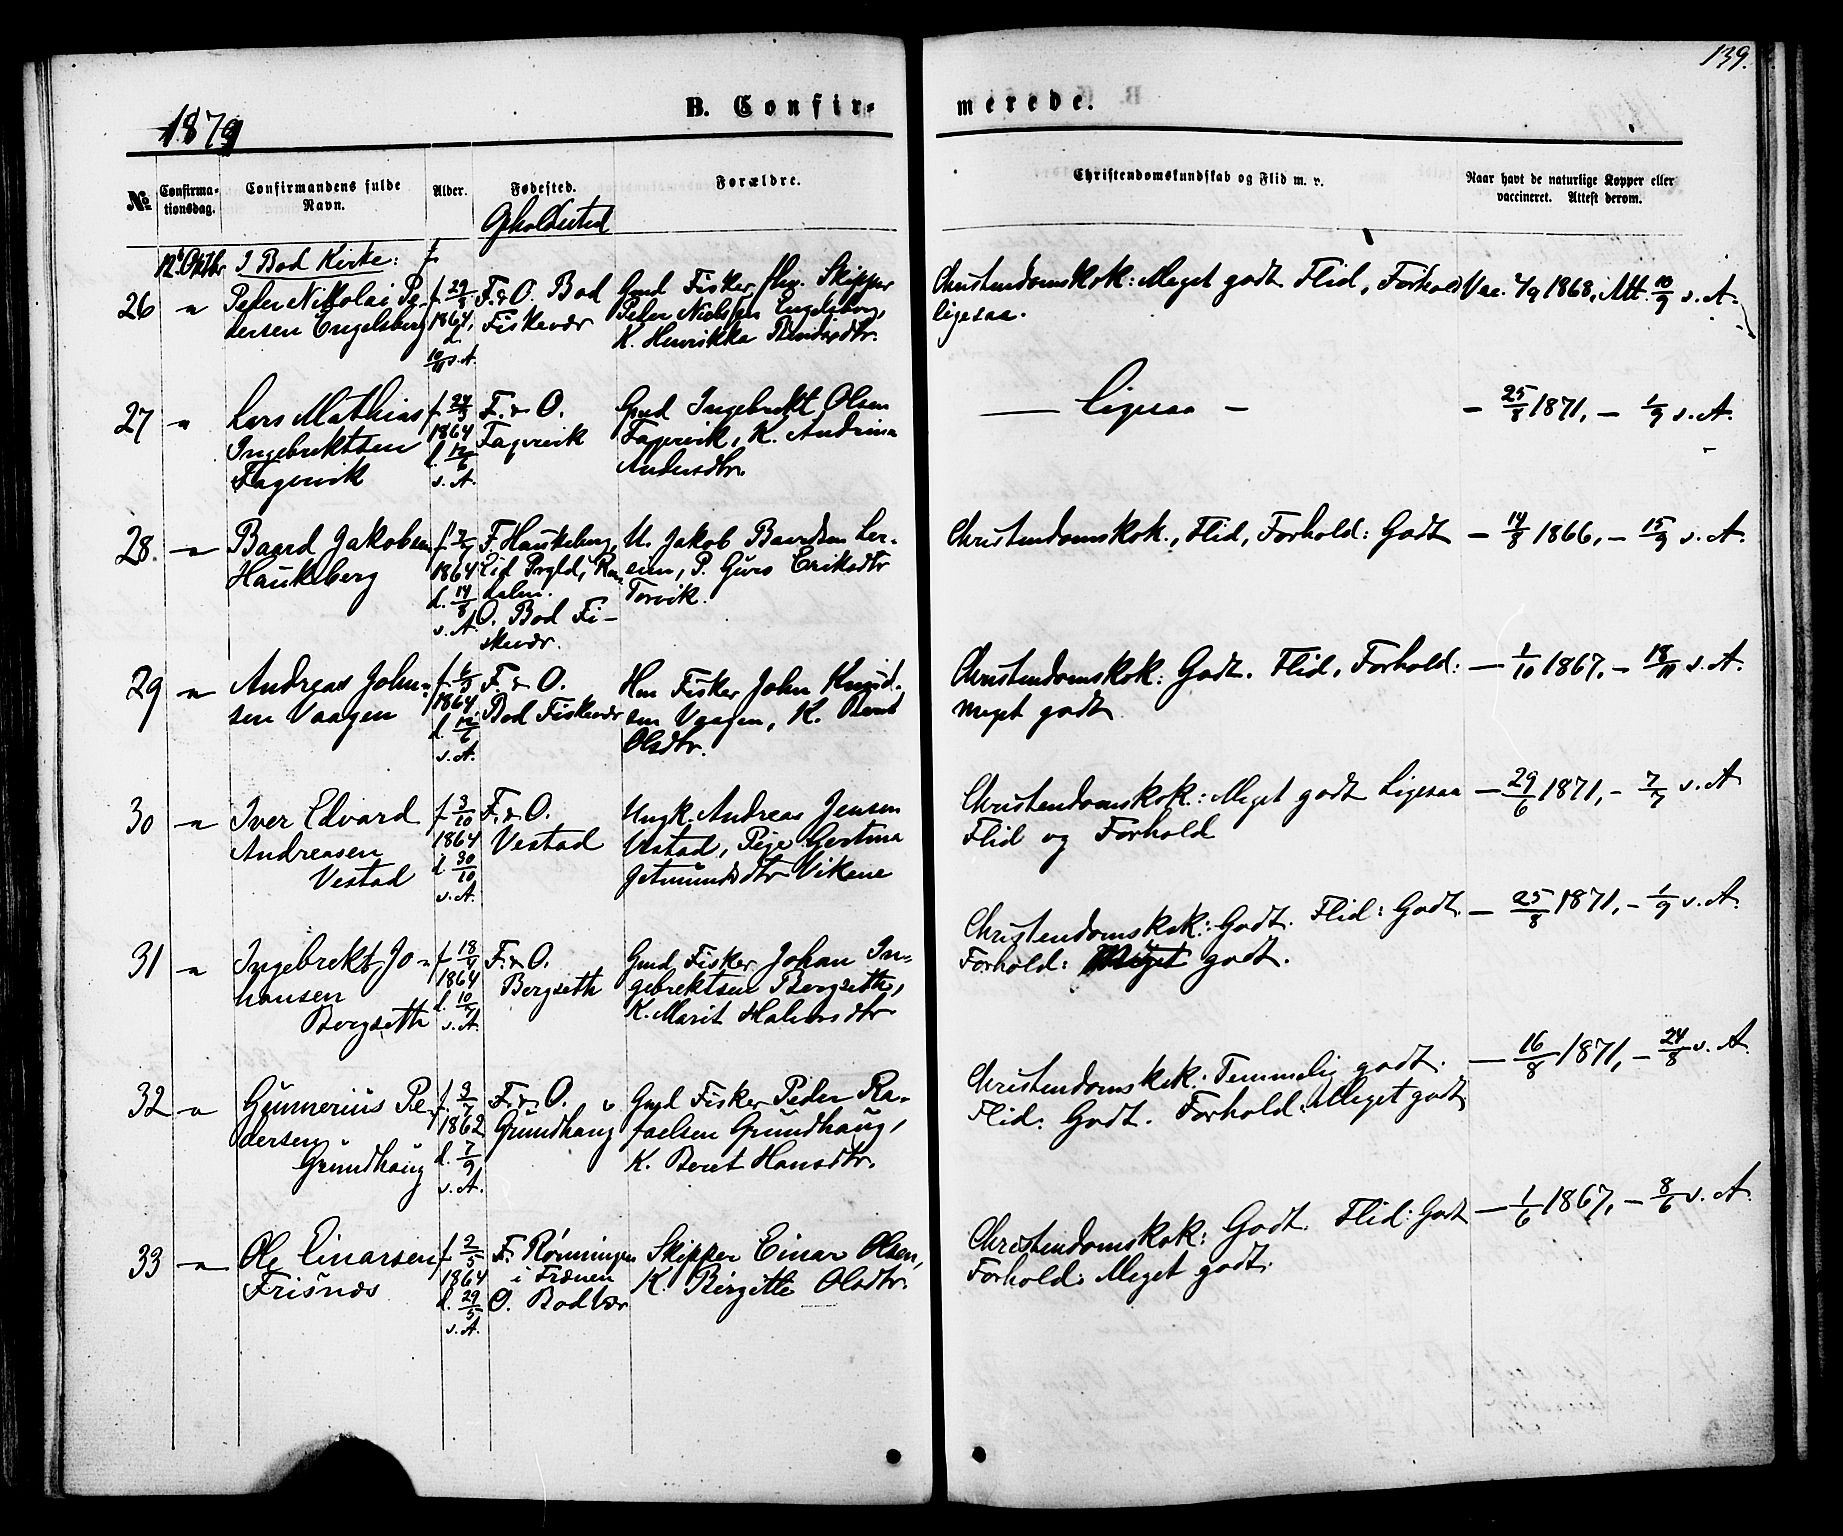 139.
1879
B. Confir-
merede.
No
Confirma-
tionsdag.
Confirmandens fulde
Navn.
Alder.
Fødested.
Opholdssted
Forældre.
Christendomskundskab og Flid m. v.
Naar havt de naturlige Kopper eller
vaccineret. Attest derom.
12te Oktbr I Bod Kirke:
26 " Peter Nikolai Pe-
dersen Engelsberg
f. 29/8
1864,
d.
10/11 s. A.
F. & O. Bod
Fiskevær
Gmd Fisker, Skipper
Peder Nielssen Engelsberg,
K. Henrikka
Christendomskdk: Meget godt Flid, Forhold
ligesaa.
Vac. 4/9 1868, Att. 10/9 s. A.
27 " Lars Mathias
Ingebrektsen
Fagervik
f. 24/3
1864
d. 12/6
s. A.
F. & O.
Fagervik
Gmd Ingebrekt Olsen
Fagervik, K. Andrina
Andersdtr.
— Ligesaa —
— 25/8 1871, — 1/9 s. A.
28. " Baard Jakobsen
Haukeberg
1864
d. 14/8
s. A.
F. Haukeberg,
Lid Prgld, Rom-
dalen.
O. Bod Fi-
skevær.
U. Jakob Baardsen Ler-
sen, P. Guro Eriksdtr
Torvik.
Christendomskdk., Flid, Forhold: Godt
— 14/8 1866, — 15/9 s. A.
29 " Andreas John-
sen Vaagen
f. 6/3
1864
d. 12/6
s. A.
F. & O.
Bod Fiskevær
Hm Fisker John Knud-
sen Vaagen, K. Beret
Olsdtr.
Christendomskdk: Godt. Flid, Forhold:
meget godt
— 1/10 1867, — 18/11 s. A.
30 " Iver Edvard
Andreasen
Vestad
f. 3/10
1864
d. 30/10
s. A.
F. & O.
Vestad
Ungk. Andreas Jensen
Vestad, Pige Gertina
Getmundsdtr Vikene
Christendomskdk.: Meget godt Ligesaa
Flid og Forhold
— 29/6 1871, — 7/7 s. A
31 " Ingebrekt Jo-
hansen
Bergseth
f. 18/4
1864
d. 10/7
s. A.
F. & O.
Bergseth
Gmd Fisker Johan In-
gebrektsen Bergseth,
K. Marit Halvorsdtr
Christendomskdk: Godt. Flid: Godt.
Forhold: Meget godt.
— 25/8 1871, — 1/9 s. A.
32 " Gunnerius Pe-
dersen
Grundhaug
f. 3/7
1862
d. 7/9
s. A.
F. & O.
Grundhaug
Gmd Fisker Peder Ra-
faelsen Grundhaug,
K. Beret Hansdtr.
Christendomskdk: Temmelig godt.
Flid: Godt. Forhold: Meget godt
— 16/8 1871, — 24/8 s. A.
33 " Ole Einarsen
Frisnes
f. 2/5
1864
d. 29/5
s. A.
F. Rønningen
i Frænen
O. Bod Vær
Skipper Einar Olsen,
K. Birgitte Olsdtr.
Christendomskdk: Godt. Flid: Godt
Forhold: Meget godt.
— 1/6 1867, — 8/6 s. A.